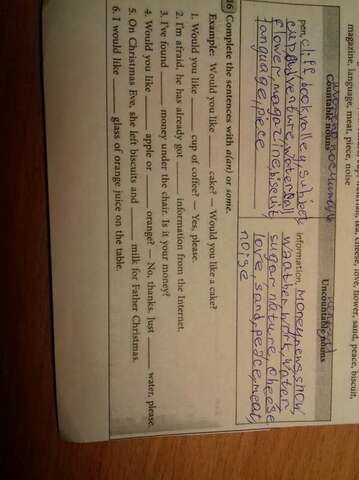 magazine, language, meat, piece, noise
cheese, love, flower, sand, peace, biscuit,
Countable nouns
Uncountable nouns
pen, cliff, book, valley, subject
adventure, waterfall
flower, magazine, biscuit
language, pece
information, money, news, snow,
weather, work, water
sugar, nature, cheese
love, sand, peace, meat,
noise
16 Complete the sentences with a(an) or some.
Example: Would you like ___ cake? — Would you like a cake?
1. Would you like ___ cup of coffee? — Yes, please.
2. I'm afraid he has already got ___ information from the Internet.
3. I've found ___ money under the chair. Is it your money?
4. Would you like ___ apple or ___ orange? — No, thanks. Just ___ water, please.
5. On Christmas Eve, she left biscuits and ___ milk for Father Christmas.
6. I would like ___ glass of orange juice on the table.